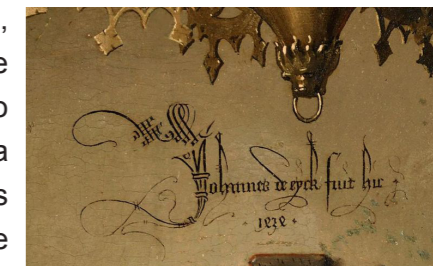 ,
e
o
a
s
e
Johannes de eyck fuit hic
· 1434 ·